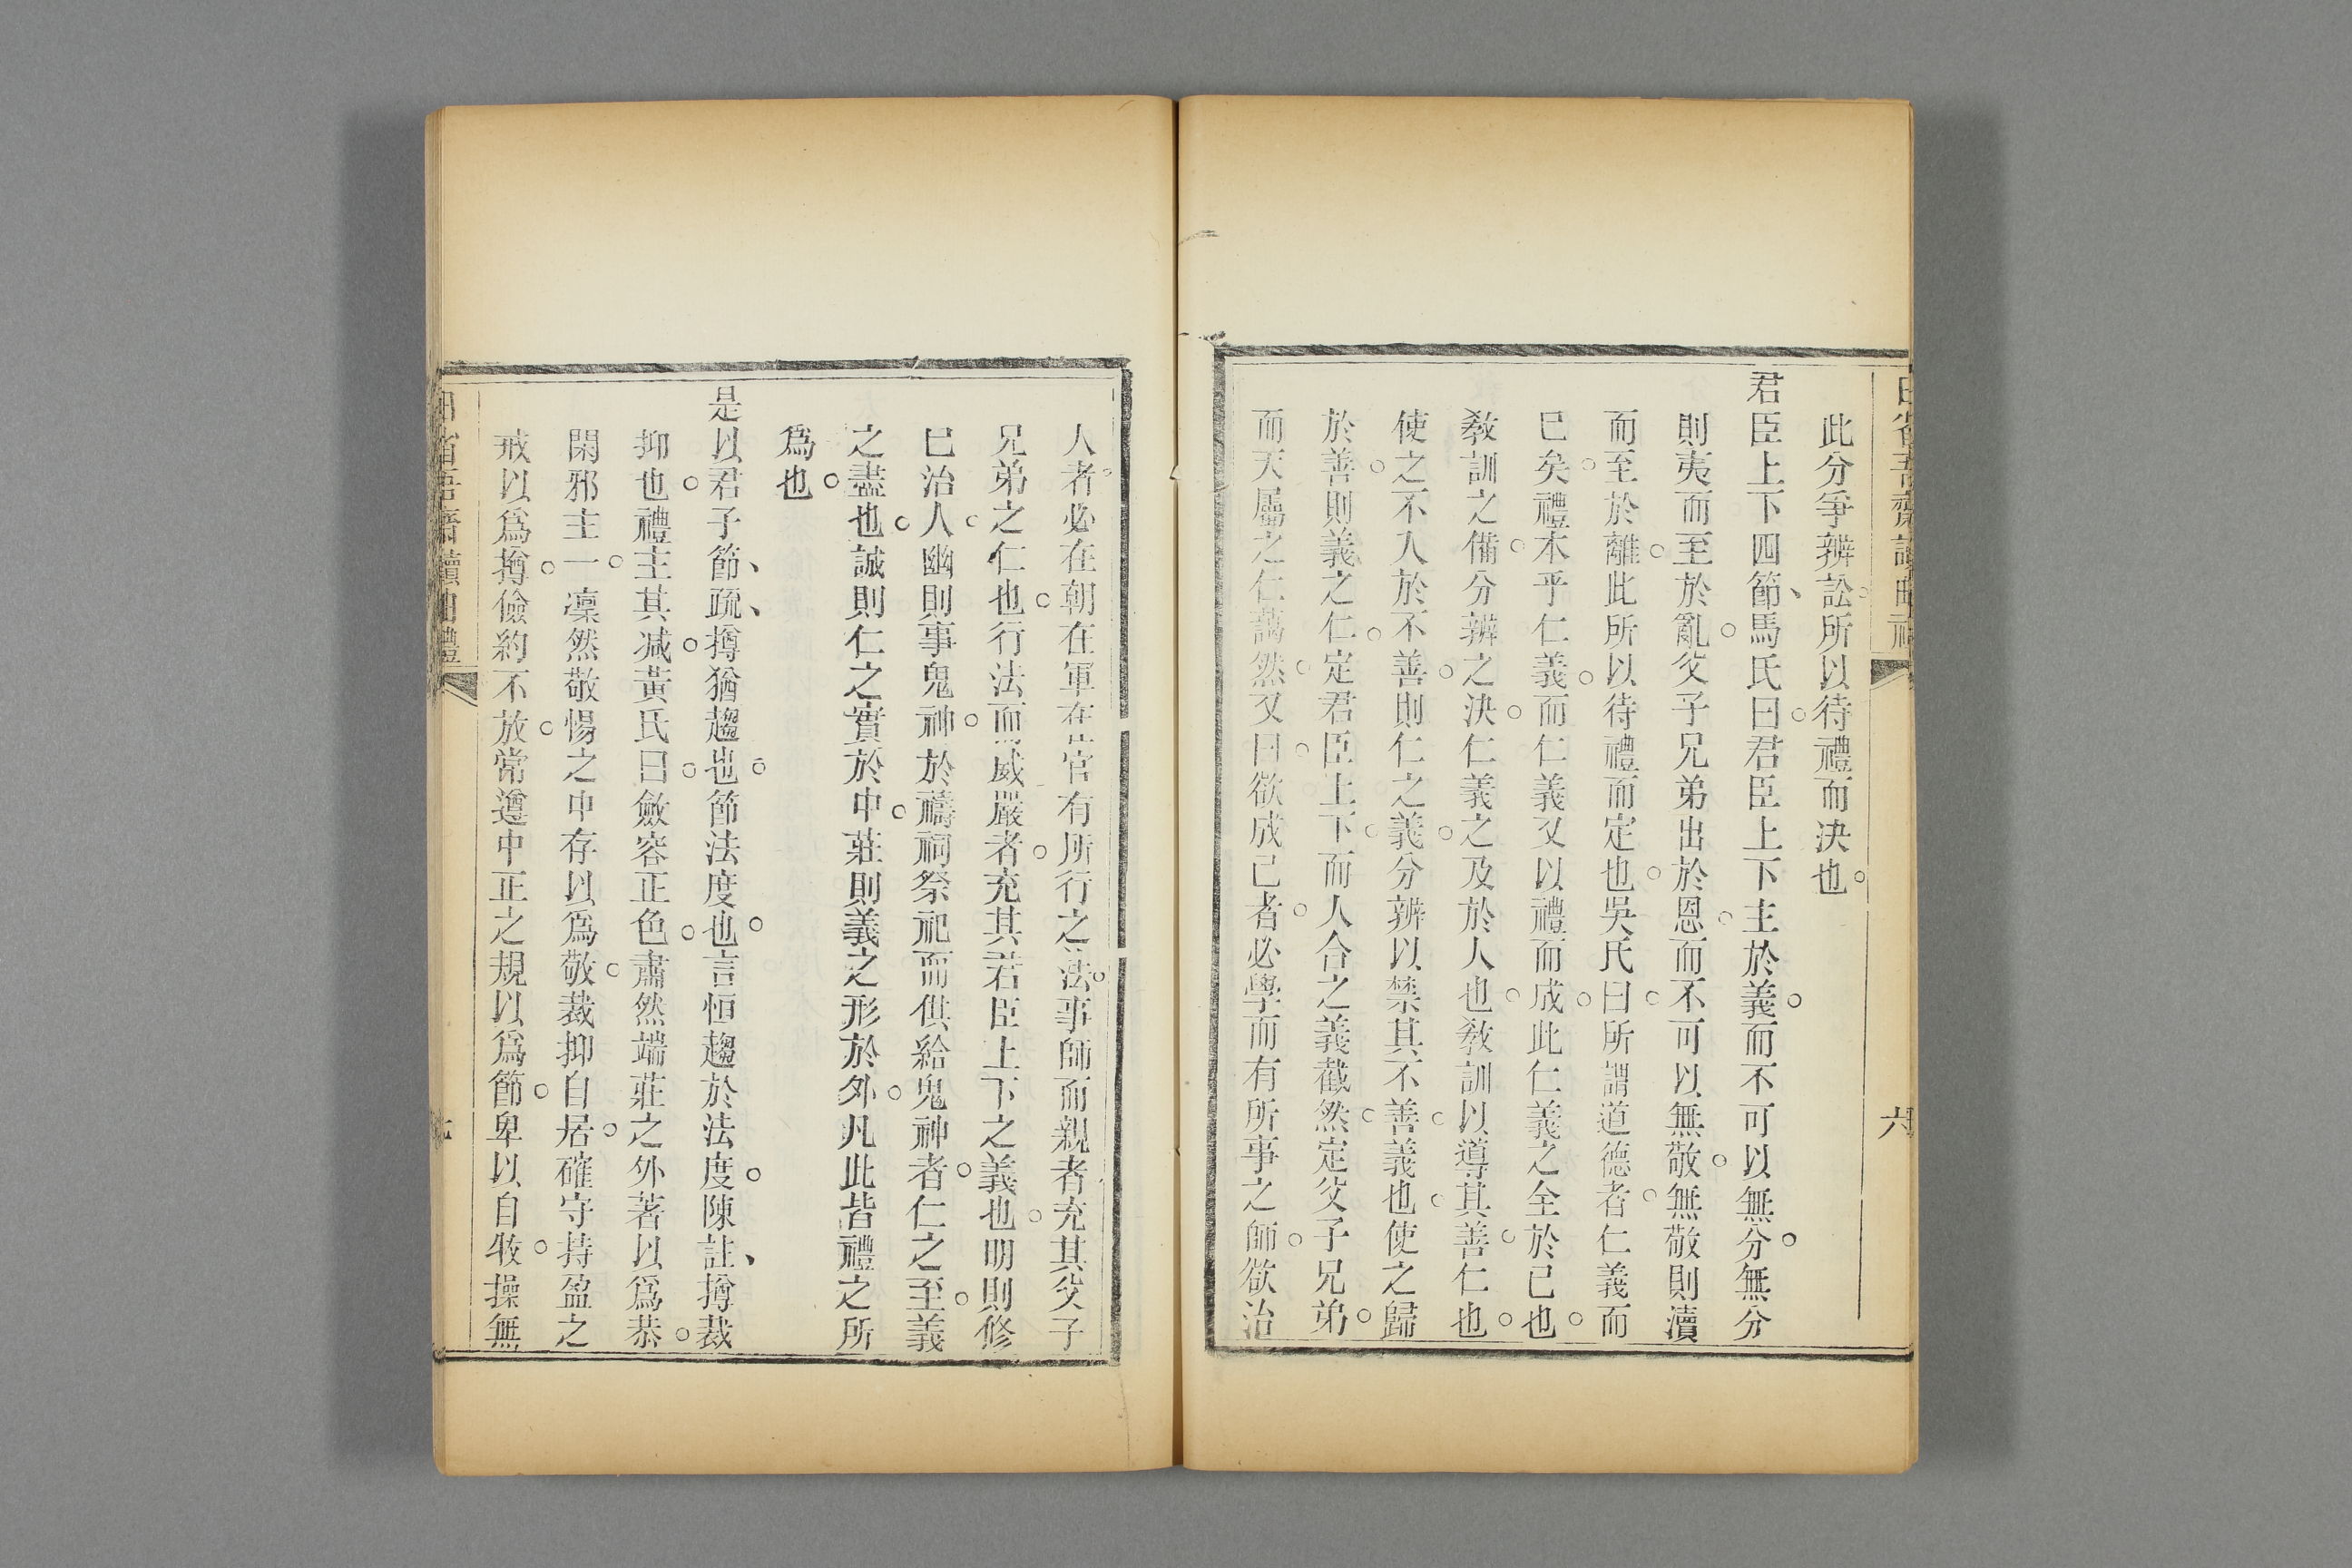 此分爭辨訟所以待禮而决也。
君臣上下四節、馬氏曰。君臣上下主於義。而不可以無分。無分
則夷而至於亂。父子兄弟出於恩。而不可以無敬。無敬則瀆
而至於離。此所以待禮而定也。吳氏曰。所謂道德者。仁義而
巳矣。禮本乎仁義。而仁義又以禮而成。此仁義之全於己也。
敎訓之備。分辨之決。仁義之及於人也。敎訓以導其善。仁也。
使之不入於不善。則仁之義。分辨以禁其不善。義也。使之歸
於善。則義之仁。定君臣上下。而人合之義截然。定父子兄弟。
而天屬之仁藹然。又曰。欲成己者。必學而有所事之師。欲治
人者。必在朝在軍在官有所行之法。事師而親者。充其父子
兄弟之仁也。行法而威嚴者。充其君臣上下之義也。明則修
巳治人。幽則事鬼神。於禱祠祭祀而供給鬼神者。仁之至。義
之盡也。誠則仁之實於中。莊則義之形於外。凡此皆禮之所
爲也。
是以君子節、疏、撙猶趨也。節法度也。言恒趨於法度。陳註、撙裁
抑也。禮主其减。黃氏曰。斂容正色。肅然端莊之外著以爲恭。
閑邪主一。凜然敬惕之中存以爲敬。裁抑自居。確守持盈之
戒以爲撙。儉約不放。常遵中正之規以爲節。卑以自牧。操無
六